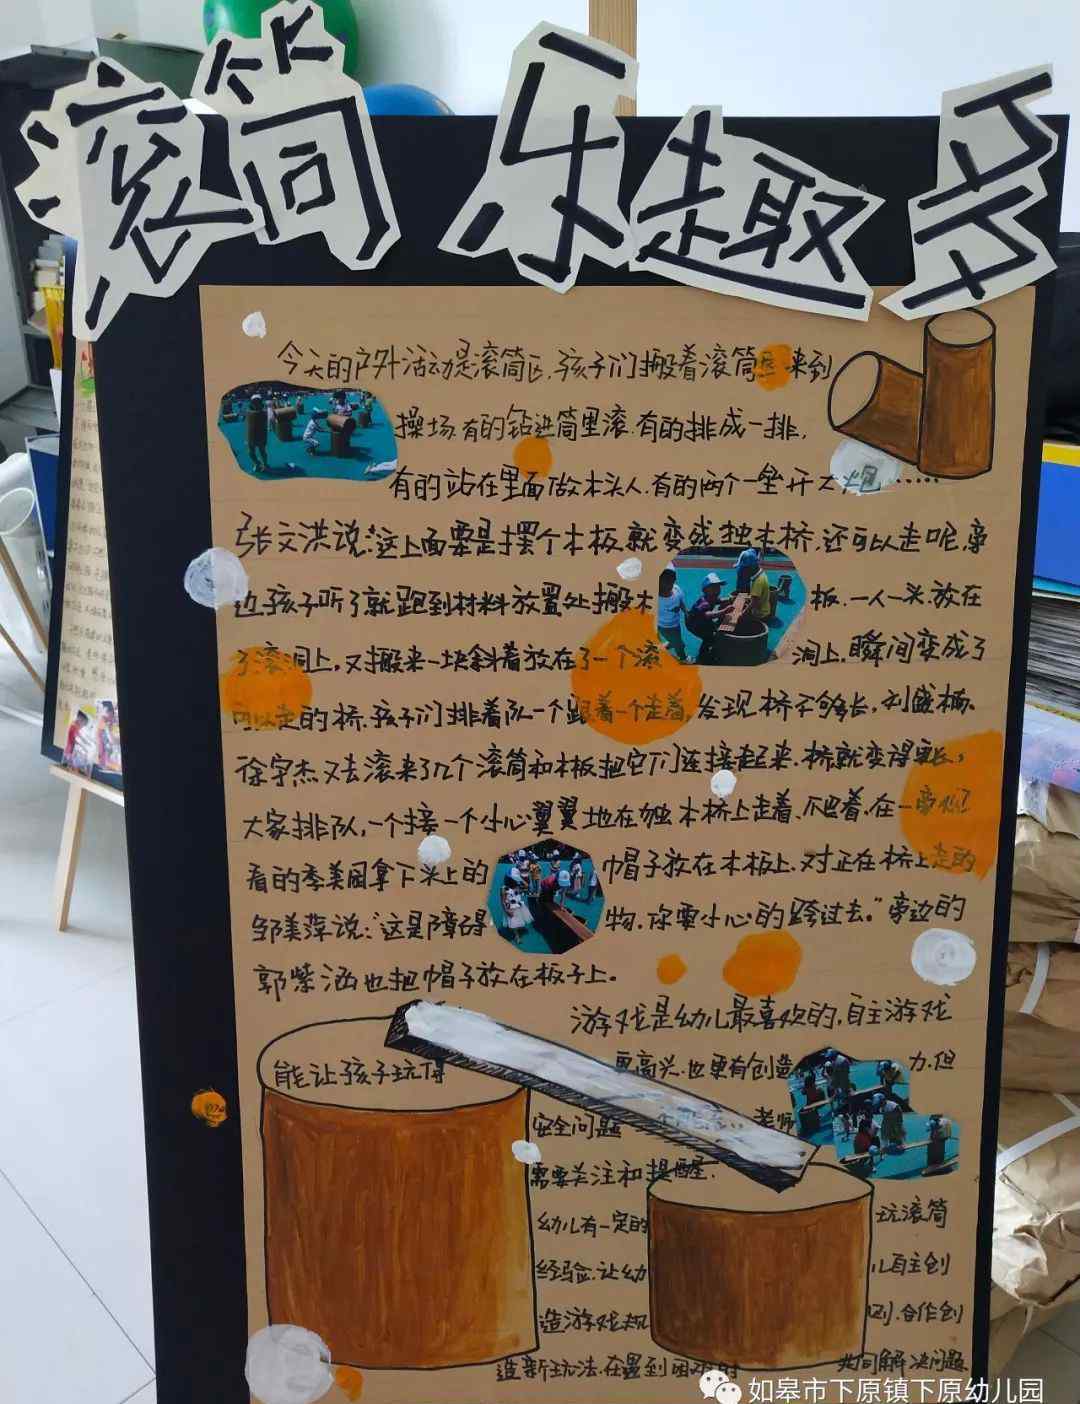 滚筒 乐趣多
今天的户外活动是滚筒区,孩子们搬着滚筒 来到
操场.有的钻进筒里滚.有的排成一排,
有的站在里面做木头人.有的两个一垒开火 ......
张文洪说:“这上面要是摆个木板就变成独木桥,还可以走呢,旁
边孩子听了就跑到材料放置处搬木 板.一人一头放在
了滚洞上,又搬来一块斜着放在了一个滚 洞上.瞬间变成了
可以走的桥.孩子们排着队一个跟着一个走着,发现桥不够长,刘盛楠.
徐宇杰又去滚来了几个滚筒和木板把它们连接起来.桥就变得更长,
大家排队,一个接一个小心翼翼地在独木桥上走着、爬着.在一旁
看的季美园拿下头上的 帽子放在木板上.对正在桥上走的
邹美萍说:“这是障碍 物.你要小心的跨过去.”旁边的
郭紫涵也把帽子放在板子上。
游戏是幼儿最喜欢的,自主游戏
能让孩子玩得 更高兴.也更有创造 力.但
安全问题 老师
需要关注和提醒.
幼儿有一定的 玩滚筒
经验.让幼 儿自主创
造游戏规 则.合作创
造新玩法.在遇到困难时 共同解决问题.
如皋市下原镇下原幼儿园